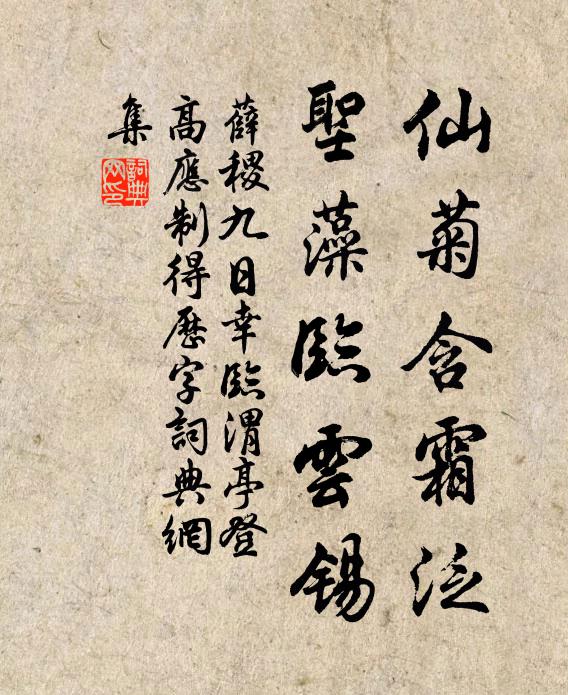 仙菊含霜泛
聖藻臨雲錫
薛稷九日幸臨渭亭登
高應制得歷字詞典網
集
詞典
網印